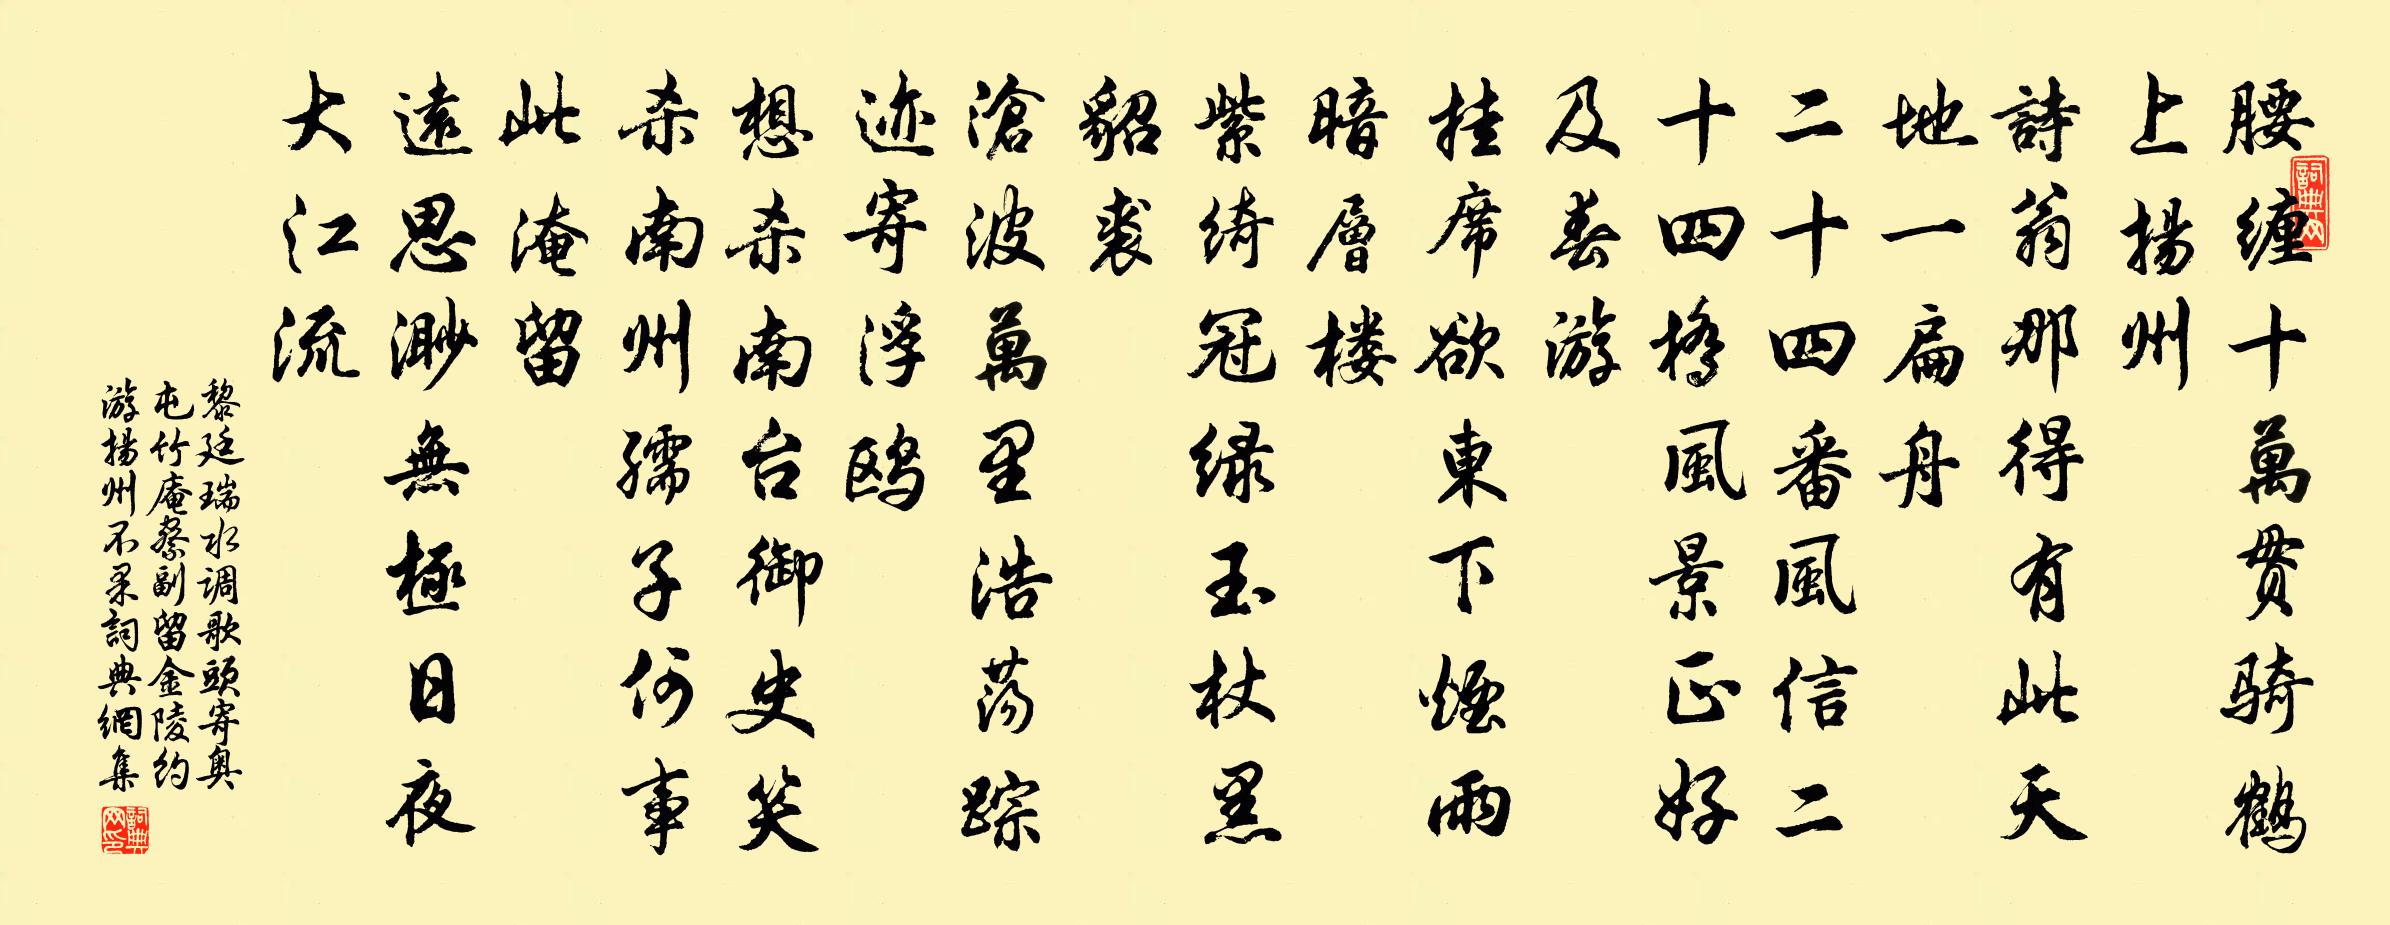 腰缠十萬贯骑鹤
上揚州
詩翁那得有此天
地一扁舟
二十四番風信二
十四橋風景正好
及春游
挂席欲東下煙雨
暗層楼
紫绮冠绿玉杖黑
貂裘
滄波萬里浩荡踪
迹寄浮鸥
想杀南台御史笑
杀南州孺子何事
此淹留
遠思渺無極日夜
大江流
黎廷瑞水调歌頭寄奥
屯竹庵察副留金陵约
游揚州不果詞典網集
詞典网
詞典网印